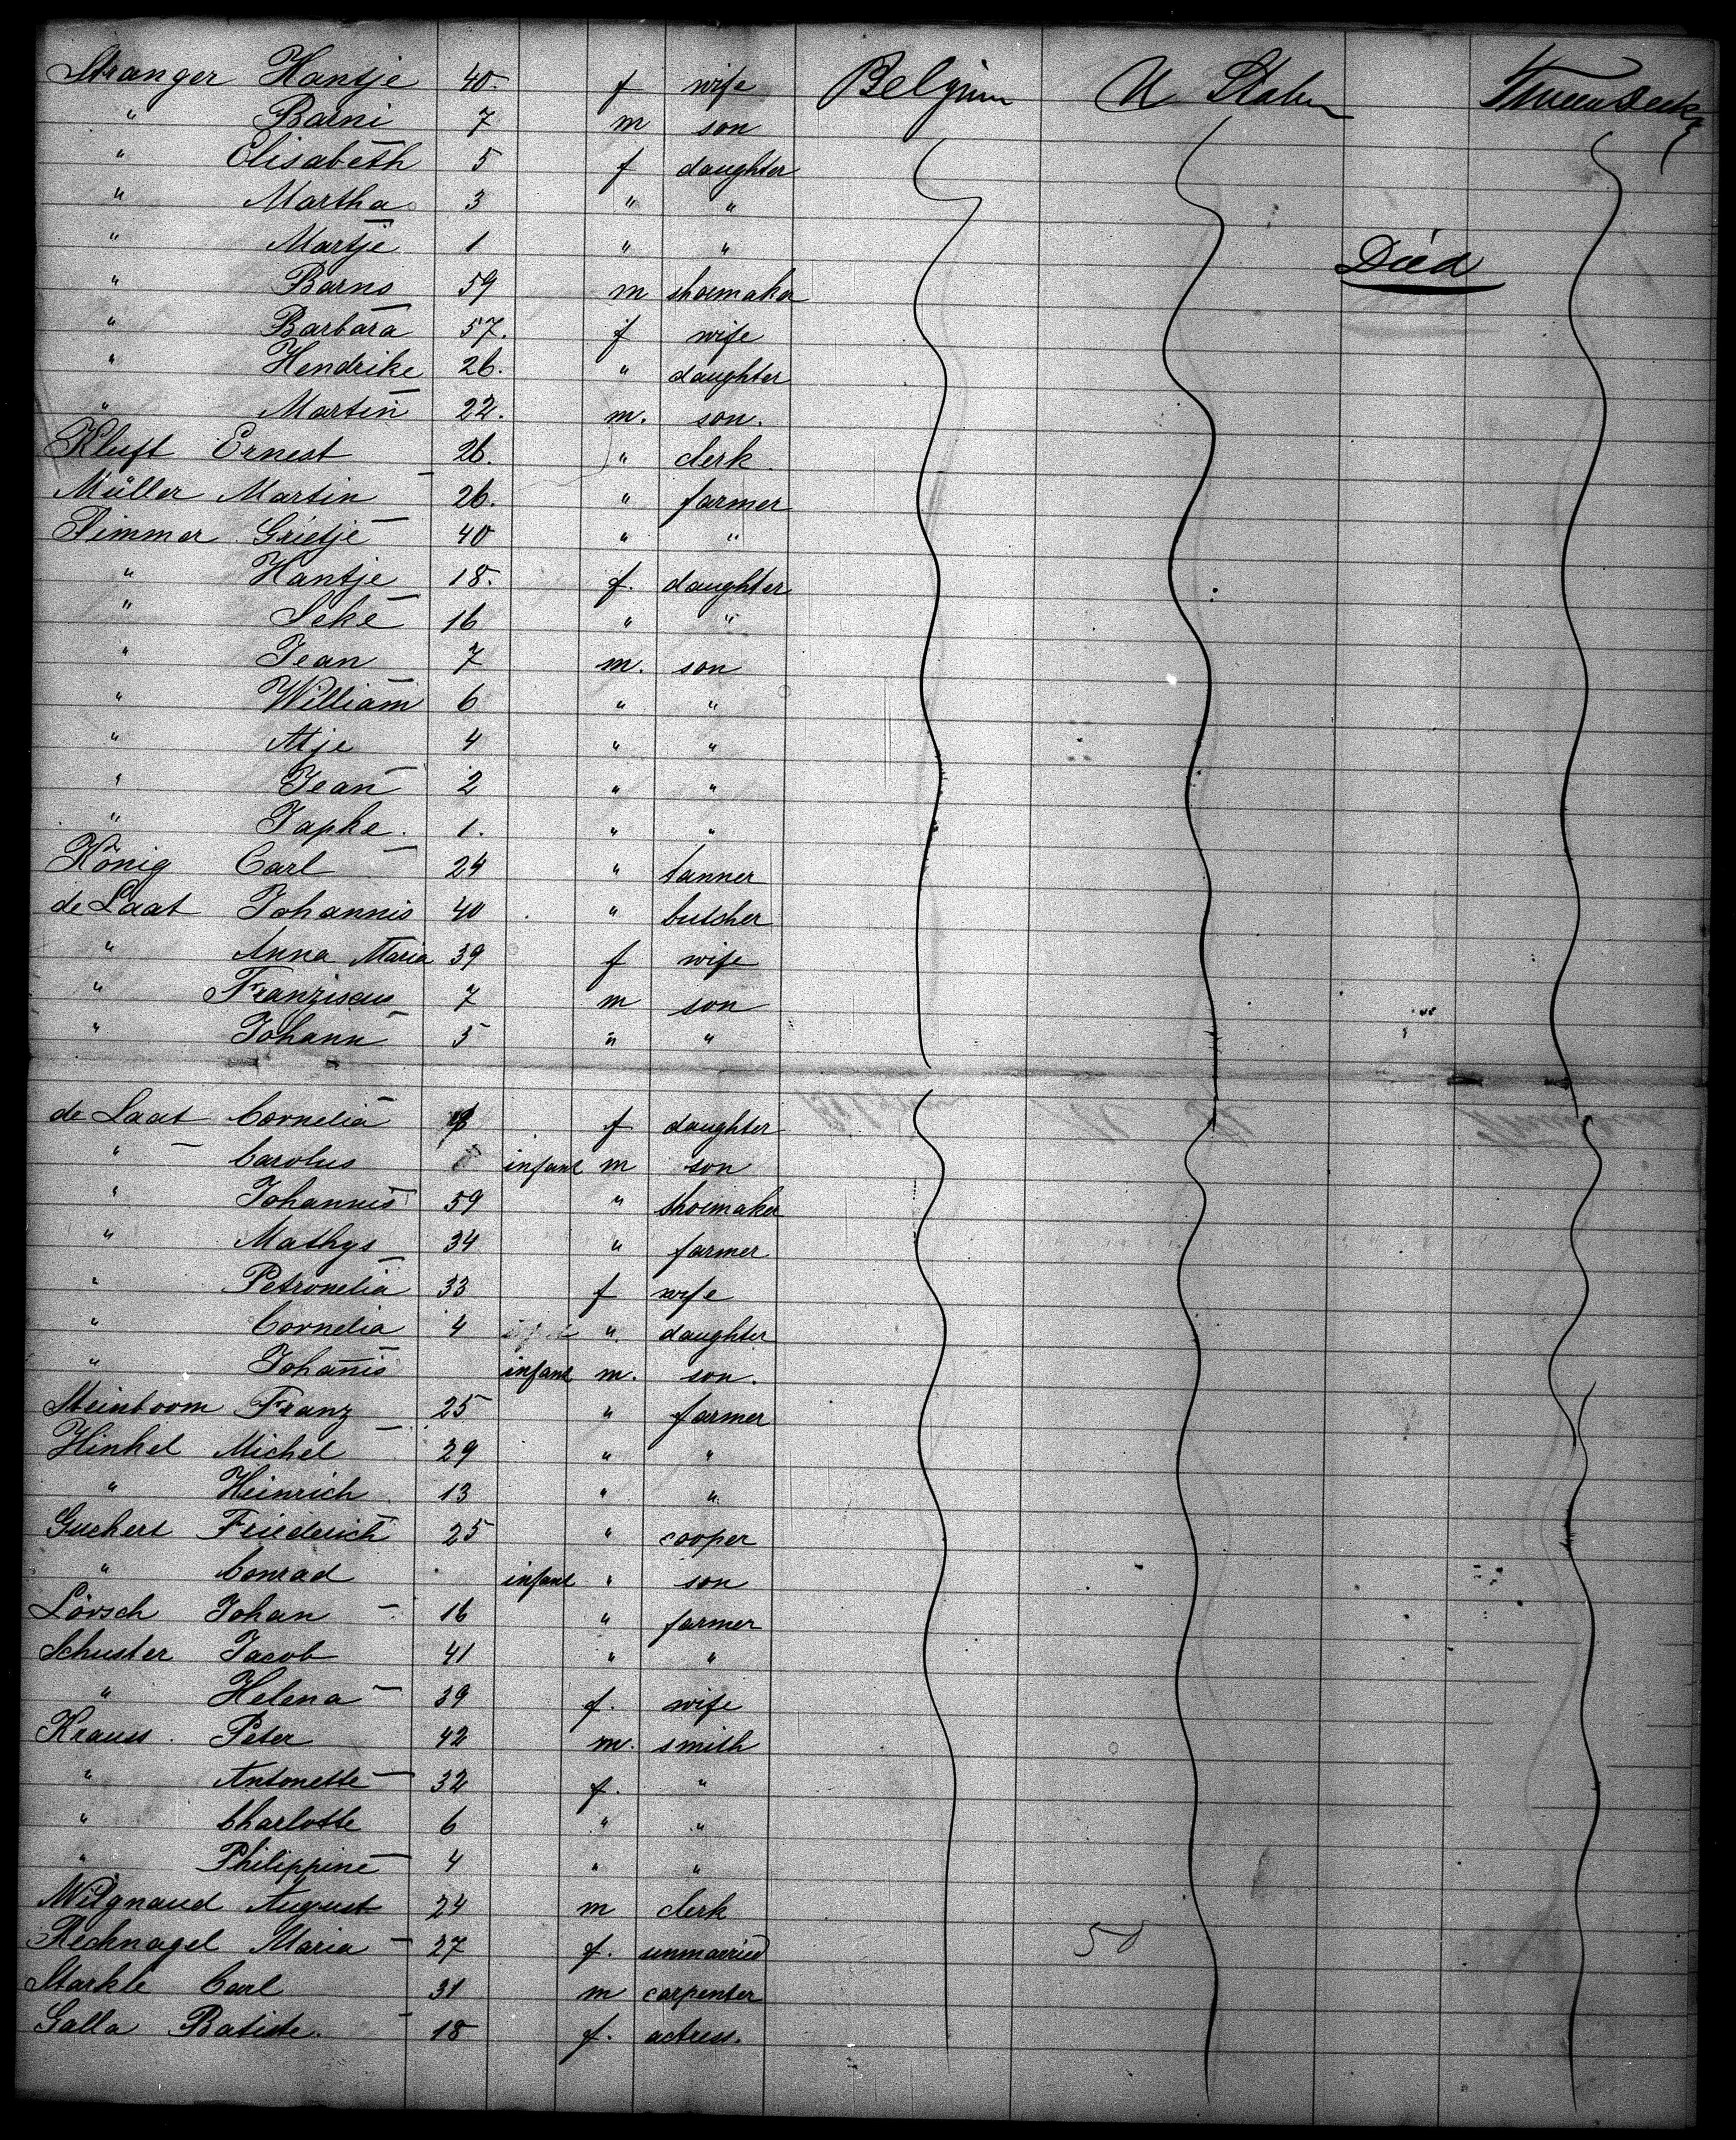 Stranger Hantje 40. f wife Belgium U States Tween Deck
" Barni 7 m son
" Elisabeth 5 f daughter
" Martha 3 " "
" Martje 1 " " Died
" Barns 59 m shoemaker
" Barbara 57. f wife
" Hendrike 26. " daughter
" Martin 22. m. son.
Kluft Ernest 26. " clerk
Müller Martin 26. " farmer
Pimmer Grietje 40 " "
" Hantje 18. f. daughter
" Seke 16 " "
" Jean 7 m. son
" William 6 " "
" Atje 4 " "
" Jean 2 " "
" Tapke. 1. " "
König Carl 24 " tanner
de Laat Johannis 40 " butcher
" Anna Maria 39 f wife
" Franziscus 7 m son
" Johann 5 " "
de Laat Cornelia f daughter
" Carolus infant m son
" Johannis 59 " shoemaker
" Mathys 34 " farmer
" Petronelia 33 f wife
" Cornelia 4 " daughter
" Johanis infant m. son.
Steinboom Franz 25 " farmer
Hinkel Michel 29 " "
" Heinrich 13 " "
Guckert Friederich 25 " cooper
" Conrad infant " son
Lörsch Johan 16 " farmer
Schuster Jacob 41 " "
" Helena 39 f. wife
Krauss. Peter 42 m. smith
" Antonette 32 f. "
" Charlotte 6 " "
" Philippine 4 " "
Wilgnaud August 24 m clerk
Recknagel Maria 27 f. unmarried 50
Starkle Carl 31 m carpenter
Galla Batiste. 18 f. actress.